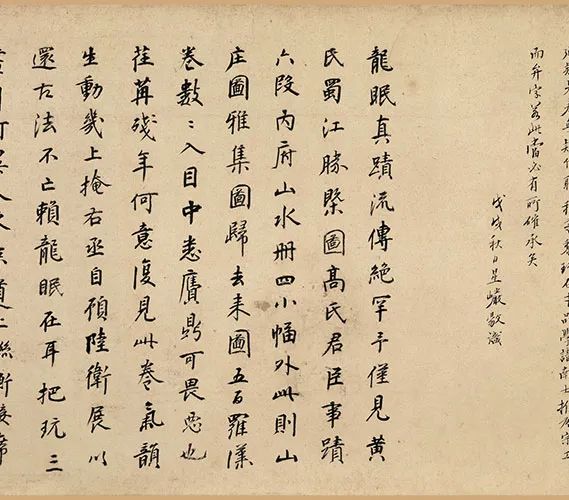 而弁字若此當必有所確承矣
戊戌秋日星巖敬識
龍眠真蹟流傳絕罕予僅見黄
氏蜀江勝槩圖高氏君臣事蹟
六段內府山水册四小幅外此則山
庄圖雅集圖歸去来圖五百羅漢
卷數〻入目中悉贗鼎可畏惡也
荏苒殘年何意復見此卷氣韻
生動幾上掩右丞自顧陸衛展以
還古法不亡賴龍眠在耳把玩三